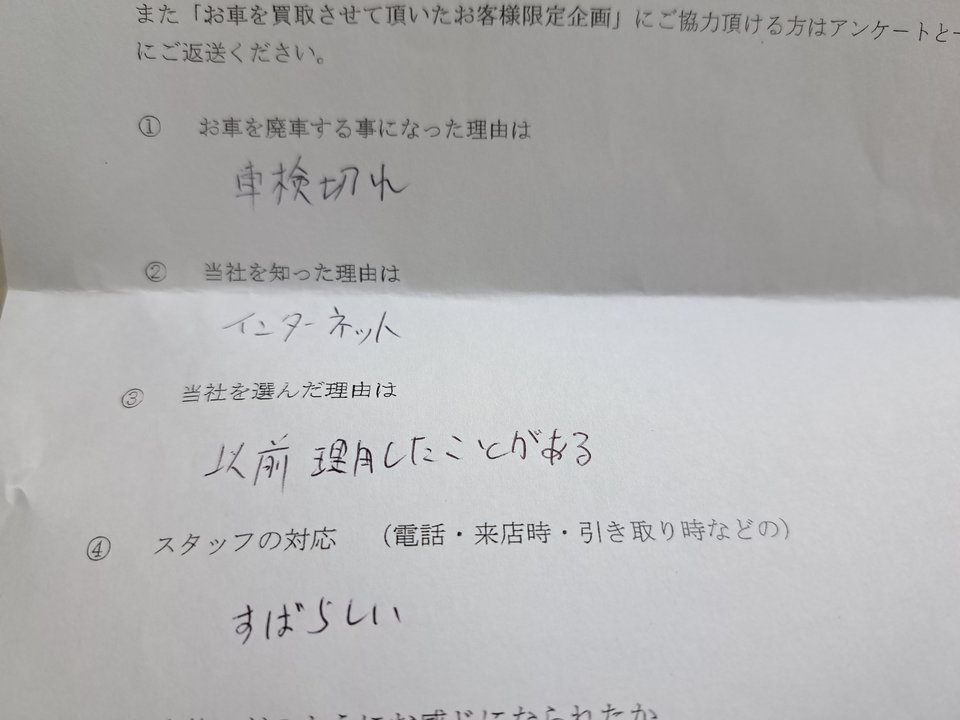 また「お車を買取させて頂いたお客様限定企画」にご協力頂ける方はアンケートと一
にご返送ください。
① お車を廃車する事になった理由は
車検切れ
② 当社を知った理由は
インターネット
③ 当社を選んだ理由は
以前理用したことがある
④ スタッフの対応 （電話・来店時・引き取り時などの）
すばらしい
にお感じになられたか